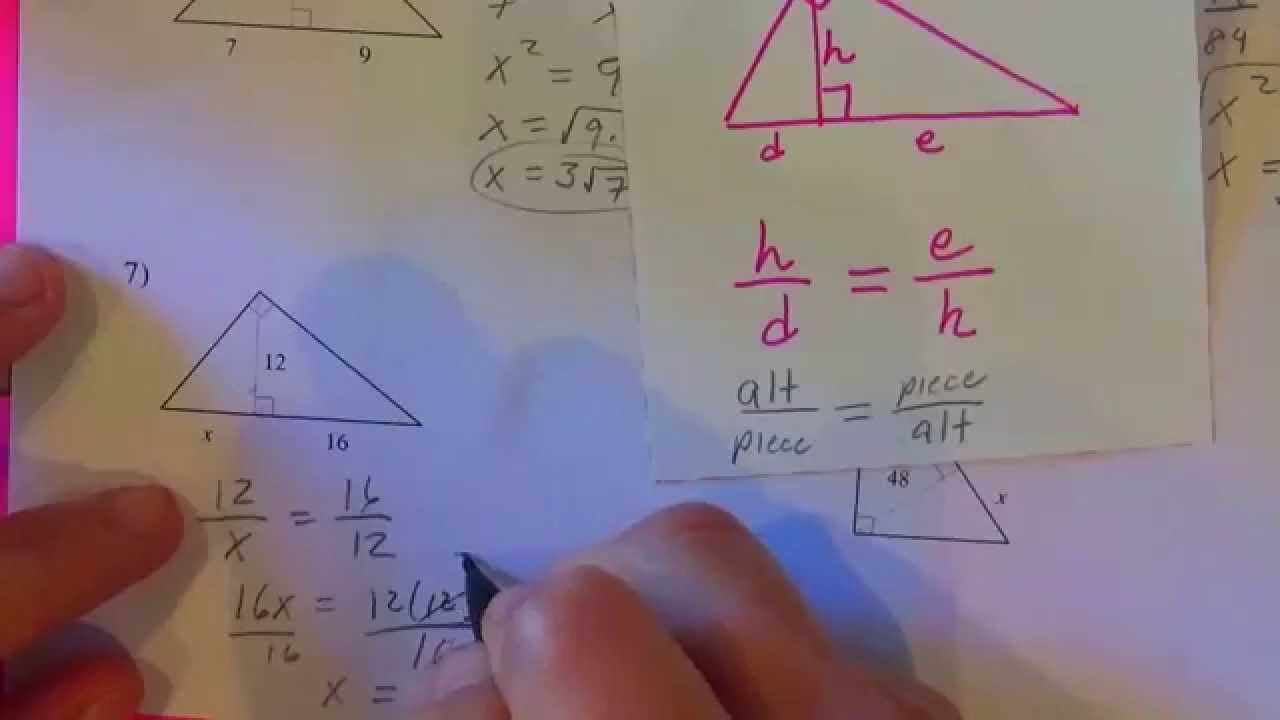 7 9
x² = 9
x = √9.
x = 3√7
h
d e
h/d = e/h
alt/piece = piece/alt
84
x²
x =
7)
12
x 16
12/x = 16/12
16x/16 = 12(12
x =
48 x